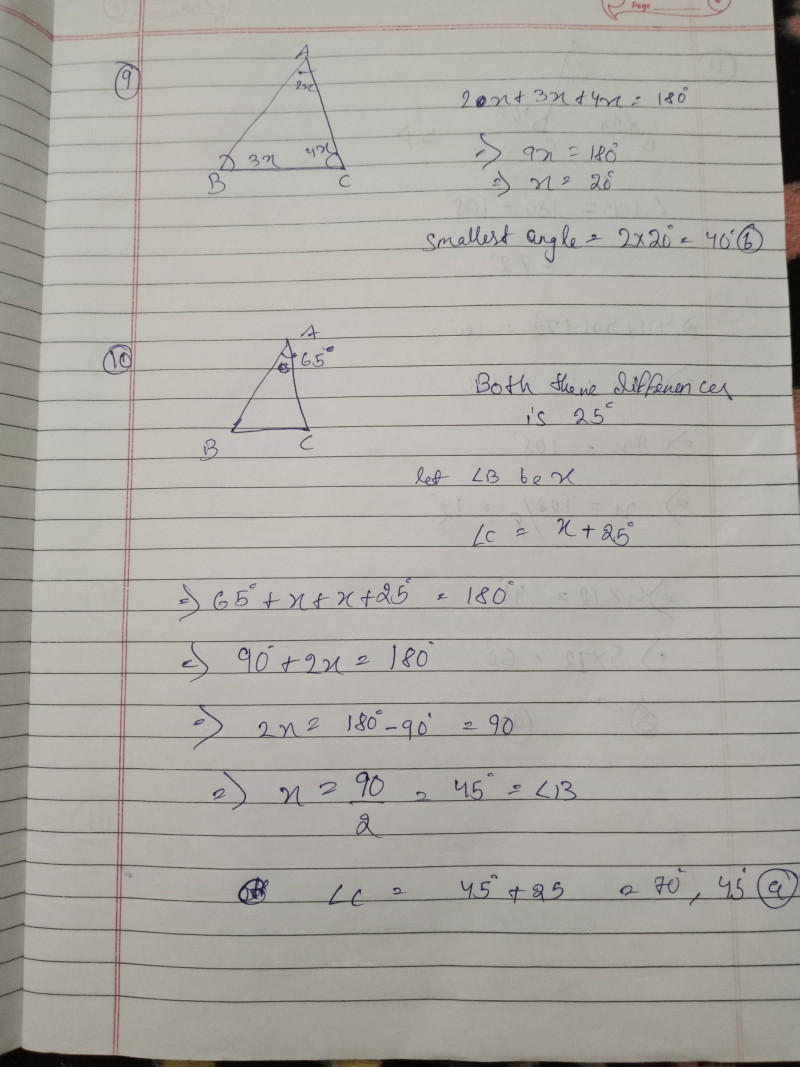 Page
9
A
2x
3x
4x
B
C
2x + 3x + 4x = 180°
⇒ 9x = 180°
⇒ x = 20°
Smallest angle = 2×20° = 40° (b)
10
A
65°
B
C
Both there differences
is 25°
let ∠B be x
∠C = x + 25°
⇒ 65° + x + x + 25° = 180°
⇒ 90° + 2x = 180°
⇒ 2x = 180° - 90° = 90
⇒ x = 90/2 = 45° = ∠B
∠C = 45° + 25 = 70°, 45° (a)